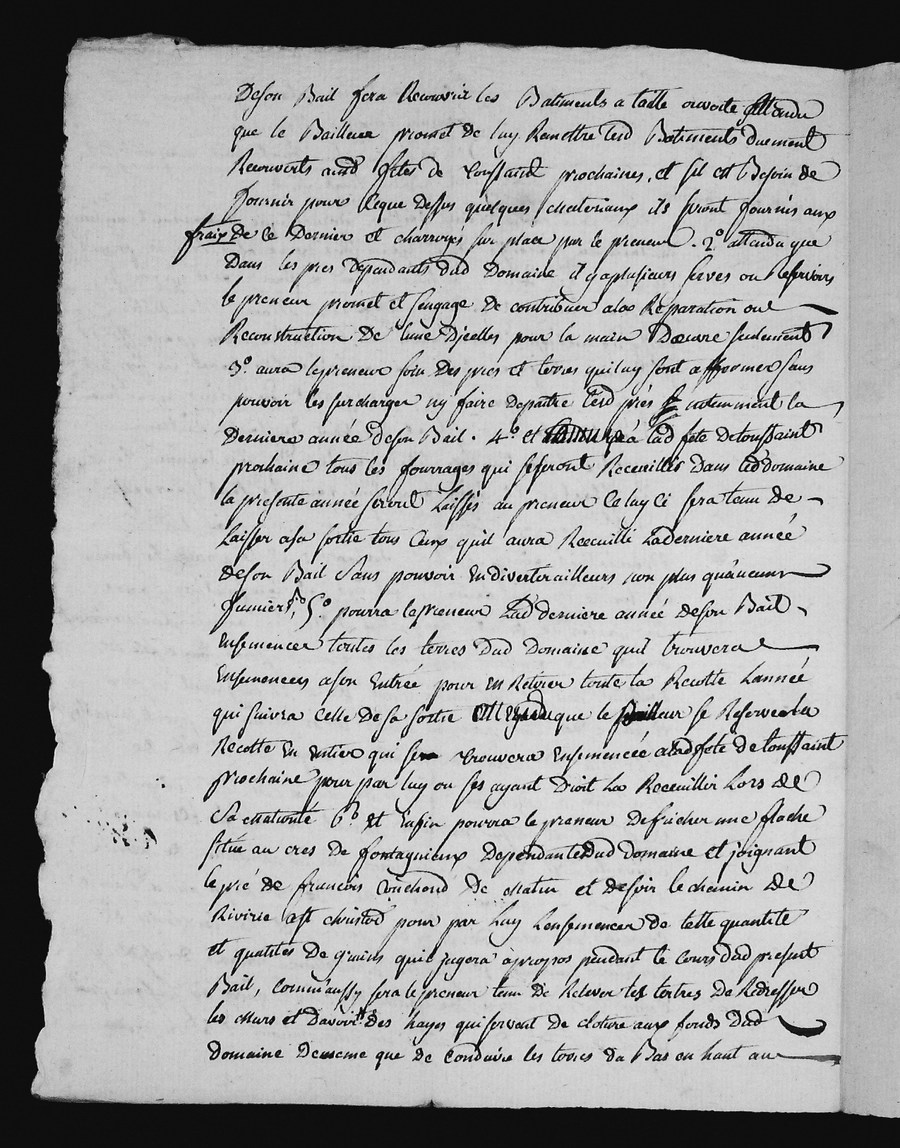 deson Bail fera Recouvrir les Batiments a taille ouverte attendu
que le Bailleur promet de luy Remettre lesd Batiments duement
Recouverts auxd fetes de toussaint prochaines, et sil est Besoin de
fournir pour Ceque dessus quelques materiaux ils seront fournis aux
fraix De Ce Dernier et charroyés sur place par le preneur. 2º attendu que
Dans les pres Dependants dud Domaine il y aplusieurs serves ou Reservoirs
le preneur promet et sengage De contribuer alad Reparation ou
Reconstruction De lune Dicelles pour la main Dœuvre seulement
3º. aura lepreneur soin Des pres et terres quiluy sont affermer sans
pouvoir les surcharger ny faire Depaitre lesd prés notemment la
Derniere année deson Bail. 4º et alad fete detoussaint
prochaine tous les fourrages qui seseront Receuillis Dans led domaine
la presente année seront Laissés au preneur Celuy Ci sera tenu de
Laisser asa sortie tous Ceux quil aura Receuilli Laderniere année
deson Bail Sans pouvoir En divertir ailleurs non plus quaucun
fumier, 5º. pourra lepreneur Lad derniere année deson Bail
Ensemencer toutes les terres Dud Domaine quil trouvera
Ensemencées ason Entrée pour En Retirer toute la Recolte Lannée
qui suivra Celle De sa sortie que le Bailleur se Reserve la
Recolte En entier qui se trouvera Ensemencée alad fete de toussaint
prochaine pour par luy ou ses ayant Droit La Receuillir Lors de
Sa maturité 6º. et Enfin pourra le preneur Defricher une flache
située au cres De fontagnieux Dependante Dud Domaine et joignant
le pré de francois de matin et de soir le chemin de
Rivirie a st christod pour par Luy Lensemencer de telle quantité
et qualités De grains quil jugera à propos pendant le Cours dud present
Bail, Comm'aussy sera le preneur tenu De Relever les tertres De Redresser
les murs et Davoir des hayes qui servent De cloture aux fonds Dud
Domaine Dememe que de Conduire les terres du Bas en haut au